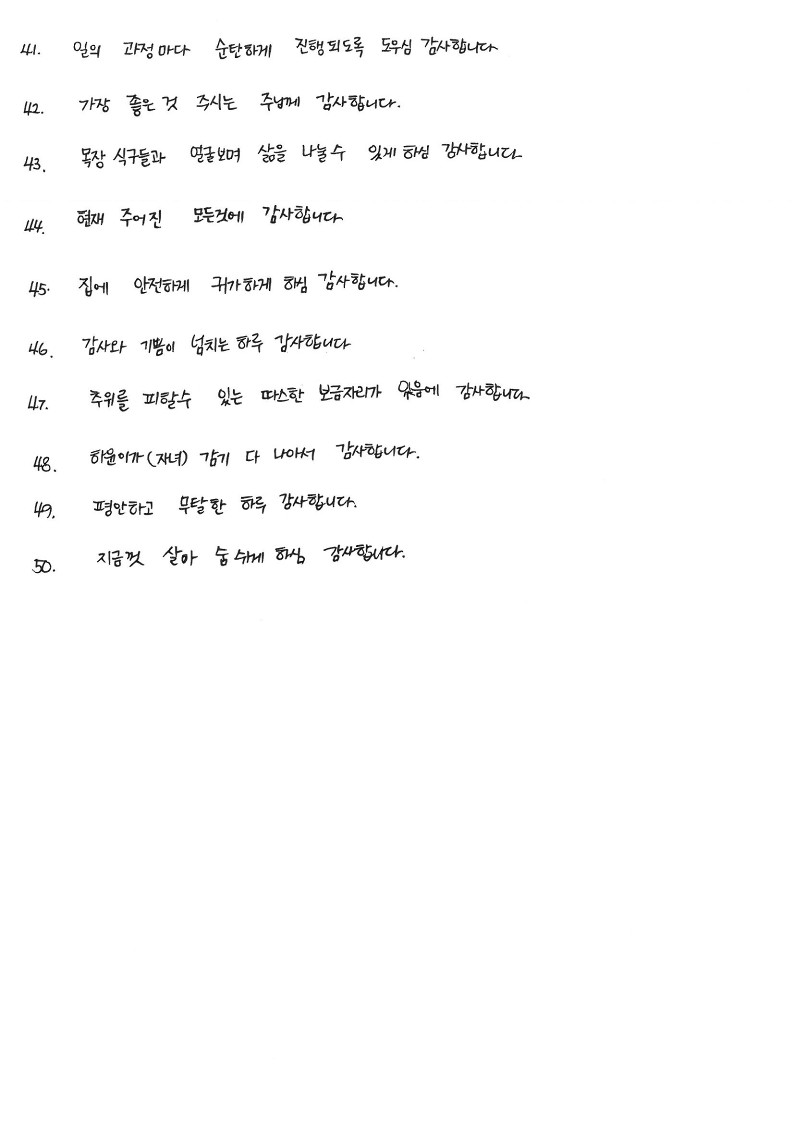 41. 일의 과정마다 순탄하게 진행되도록 도우심 감사합니다
42. 가장 좋은 것 주시는 주님께 감사합니다.
43. 목장 식구들과 얼굴보며 삶을 나눌수 있게 하심 감사합니다
44. 현재 주어진 모든것에 감사합니다
45. 집에 안전하게 귀가하게 하심 감사합니다.
46. 감사와 기쁨이 넘치는 하루 감사합니다
47. 추위를 피할수 있는 따스한 보금자리가 있음에 감사합니다
48. 하윤이가(자녀) 감기 다 나아서 감사합니다.
49. 평안하고 무탈한 하루 감사합니다.
50. 지금껏 살아 숨쉬게 하심 감사합니다.